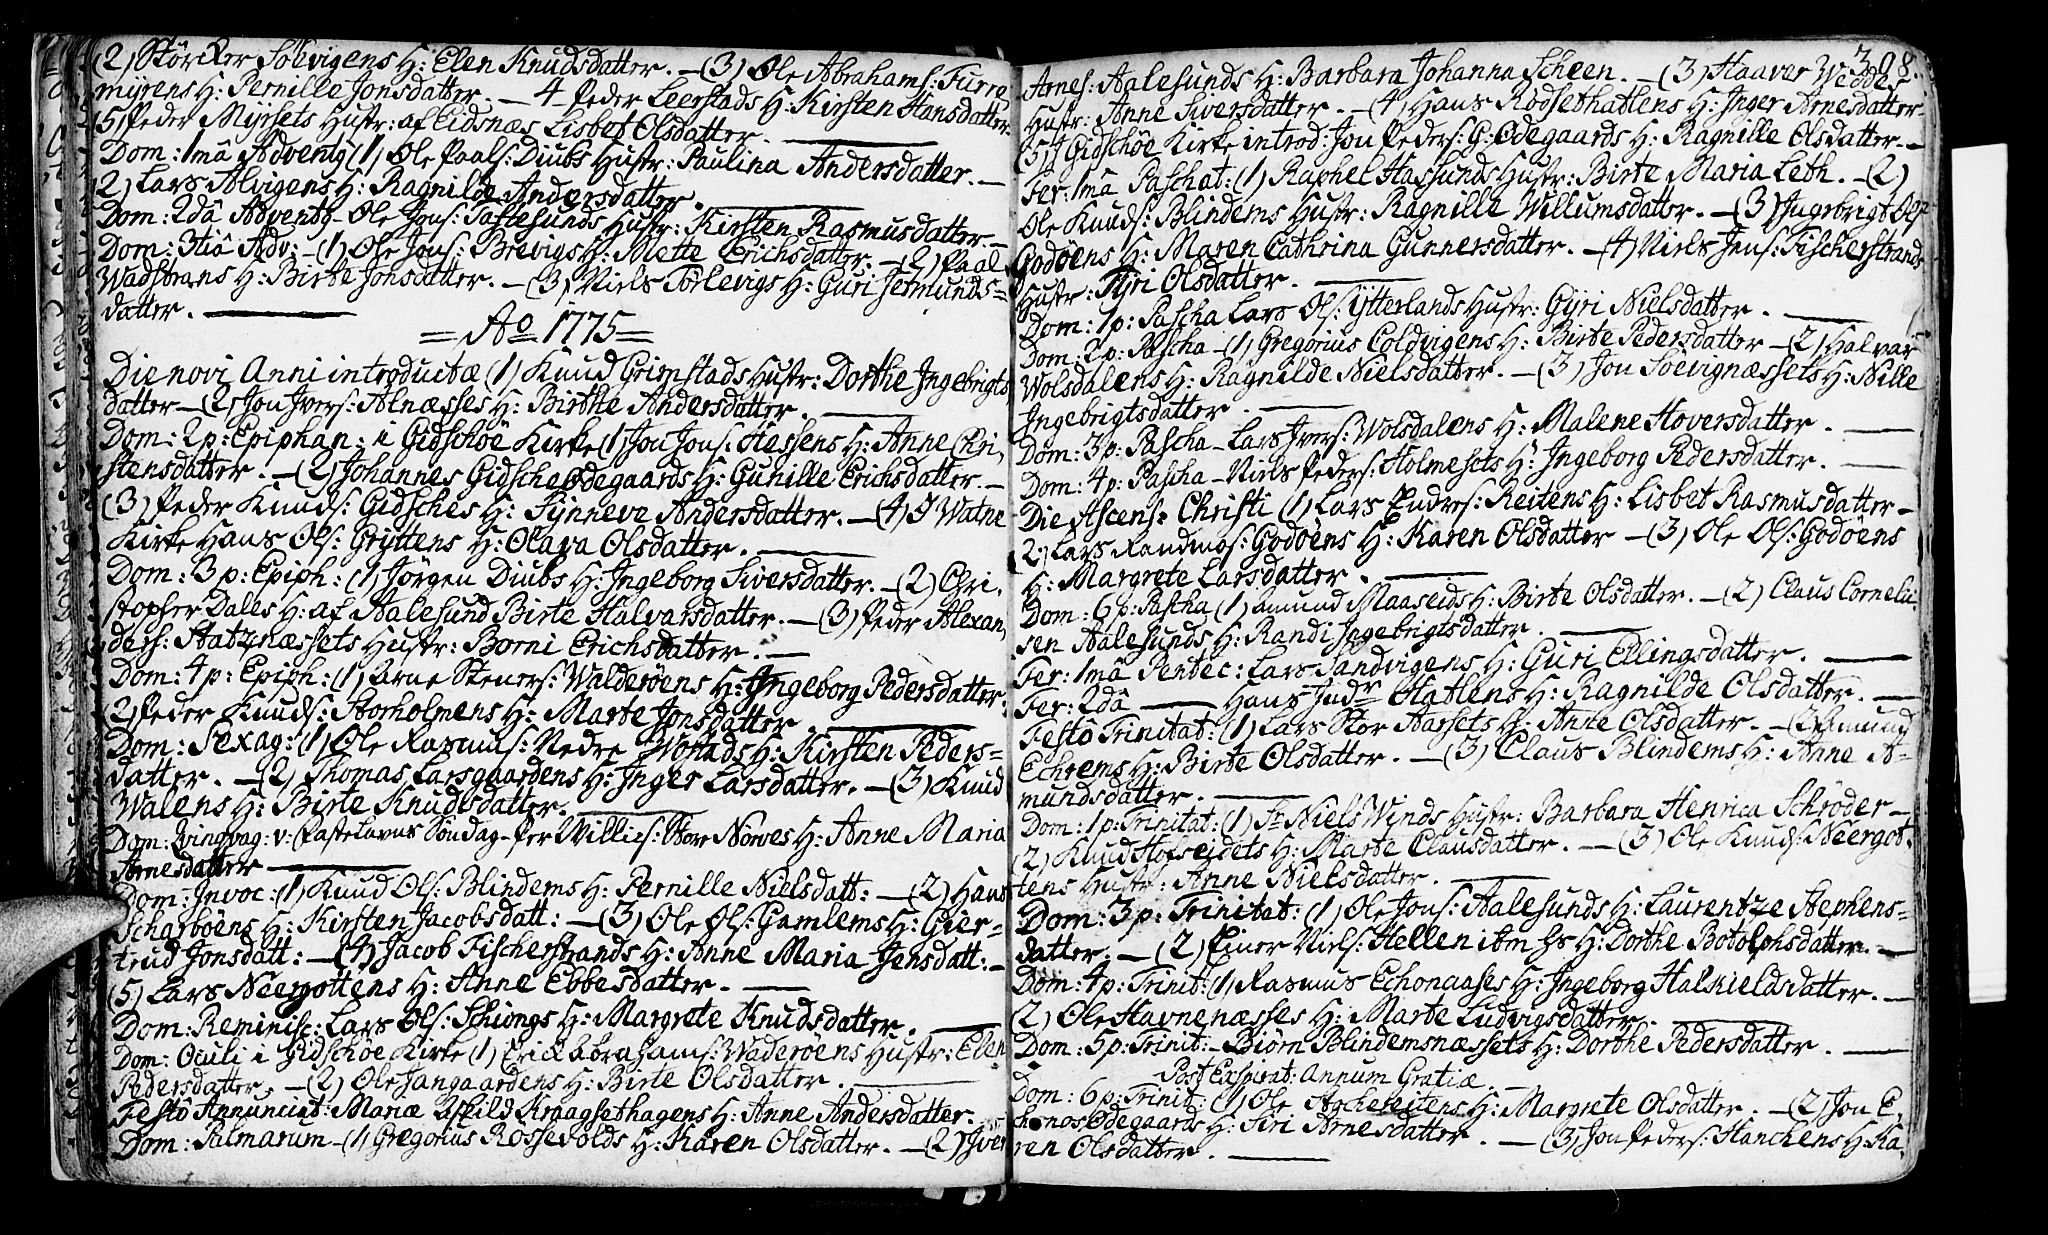 (2) Størcker Solevigens H: Elen Knudsdatter. — (3) Ole Abrahams: Furre
myrens H: Pernille Jonsdatter — 4 Peder Leerstads H: Kirsten Hansdatter
5) Peder Myrsets Hustr: af Eidsnæs Lisbet Olsdatter.
Dom: 1mâ Advent9 (1) Ole Paals: Diubs Hustr: Paulina Andersdatter. —
2) Lars Alvigens H: Ragnilde Andersdatter.
Dom: 2dâ Advent9 — Ole Jons: Hustr: Kirsten Rasmusdatter. —
Dom: 3tiâ Adv: — (1) Ole Jons: Brevigs H: Mette Erichsdatter. — (2) Paal
Wadstrans H: Birte Jonsdatter. — (3) Niels Torlevigs H: Guri Jetmunds=
datter.
= Ao 1775 =
Die novi Anni introductæ (1) Knud Grimstads Hustr: Dorthe Ingebrigts
datter — (2) Jon Ivers: Alnæsses H: Birthe Andersdatter.
Dom: 2 p: Epiphan: i Gidschöe Kirke (1) Jon Jons: Hessens H: Anne Chri,
stensdatter. — (2) Johannes Gidsche Ødegaards H: Gunille Erichsdatter. —
(3) Peder Knuds: Gidsches H: Synneve Andersdatter. — (4) I Watne
Kirke Hans Ols: Gryttens H: Olava Olsdatter.
Dom: 3 p: Epiph: (1) Jörgen Diubs H: Ingeborg Siversdatter. — (2) Chri,
stopher Dales H: af Aalesund Birte Halvarsdatter. — (3) Peder Alexan,
ders: Statznæssets Hustr: Borni Erichsdatter.
Dom: 4 p: Epiph: (1) Arne Steners: Walderöens H: Ingeborg Pedersdatter.
2) Peder Knuds: Storholmens H: Marte Jonsdatter.
Dom: Sexag: (1) Ole Rasmus: Nedre H: Kirsten Peders=
datter. — (2) Thomas Larsgaardens H: Inger Larsdatter. — (3) Knud
Walens H: Birte Knudsdatter.
Dom: Qvinqvag: v: Fastelavns Söndag — Per Willies: Store Nörves H: Anne Maria
Arnesdatter
Dom: Invoc: (1) Knud Ols: Blindems H: Pernille Nielsdatt: — (2) Hans
Scharböens H: Kirsten Jacobsdatt: — (3) Ole Ols: Gamlems H: Gier=
trud Jonsdatt: — (4) Jacob Fischerstrands H: Anne Maria Jensdatt: —
(5) Lars Neergottens H: Anne Ebbesdatter.
Dom: Reminisc: Lars Ols: Schiongs H: Margrete Knudsdatter.
Dom: Oculi i Gidschöe Kirke (1) Erick Abrahams: Waderöens Hustr: Elen
Pedersdatter. — (2) Ole Jangaardens H: Birte Olsdatter.
Festô Annunciat: Mariæ Askild Kraagsethagens H: Anne Andersdatter.
Dom: Palmarum — (1) Gregorius Rössevolds H: Karen Olsdatter. — (2) Iver
308.
Arnes: Aalesunds H: Barbara Johanna Scheen. — (3) Haaver Wedde
Hustr: Anne Siversdatter. — (4) Hans Rödsethatlens H: Inger Arnesdatter
(5) I Gidschöe Kirke introd: Jon Peders: G: Ødegaards H: Ragnille Olsdatter. —
Fer: 1mâ Paschat: (1) Raphel Hasunds Hustr: Birte Maria Leth. — (2)
Ole Knuds: Blindems Hustr: Ragnille Willumsdatter. — (3) Ingebrigt Ols
Godöens H: Maren Cathrina Gunnersdatter. — (4) Niels Jens: Fischerstrands
Hustr: Tyri Olsdatter.
Dom: 1 p: Pascha Lars Ols: Ytterlands Hustr: Gyri Nielsdatter.
Dom: 2 p: Pascha — (1) Gregorius Coldvigens H: Birte Pedersdatter — (2) Halvar
Wolsdalens H: Ragnilde Nielsdatter. — (3) Jon Söevignæssets H: Nille
Ingebrigtsdatter.
Dom: 3 p: Pascha — Lars Ivers: Wolsdalens H: Malene Hoversdatter.
Dom: 4 p: Pascha — Niels Peders: Holmesets H: Ingeborg Pedersdatter.
Die Ascens: Christi (1) Lars Endres: Reitens H: Lisbet Rasmusdatter —
2) Lars Randmos: Godöens H: Karen Olsdatter — (3) Ole Ols: Godöens
H: Margrete Larsdatter.
Dom: 6 p: Pascha (1) Amund Maaseids H: Birte Olsdatter. — (2) Claus Corneliu
sen Aalesunds H: Randi Ingebrigtsdatter.
Fer: 1mâ Pentec: Lars Sandvigens H: Guri Ellingsdatter.
Fer: 2dâ — Hans Indr Hatlens H: Ragnilde Olsdatter. —
Festô Trinitat: (1) Lars Stor Aassets H: Anne Olsdatter. — (2) Amund
Echrems H: Birte Olsdatter. — (3) Claus Blindems H: Anne A=
mundsdatter.
Dom: 1 p: Trinitat: (1) Sr Niels Winds Hustr: Barbara Henrica Schröder —
(2) Knud Hofseidets H: Marte Clausdatter. — (3) Ole Knuds: Neergot.
tens Hustr: Anne Nielsdatter.
Dom: 3 p: Trinitat: (1) Ole Jons: Aalesunds H: Laurentze Stephens=
datter. — (2) Einer Niels: Hellen ibm hs H: Dorthe Botolphsdatter. —
Dom: 4 p: Trinit: (1) Rasmus Echonaases H: Ingeborg Halkieldsdatter. —
(2) Ole Havnenæsses H: Marte Ludvigsdatter.
Dom: 5 p: Trinit: — Biörn Blindemsnæssets H: Dorthe Pedersdatter.
Post Exspirat: Annum Gratiæ.
Dom: 6 p: Trinit: (1) Ole H: Margrete Olsdatter. — (2) Jon E.
chonos Ødegaards H: Siri Arnesdatter. — (3) Jon Peders: Hanckens H: Ka,
ren Olsdatter.